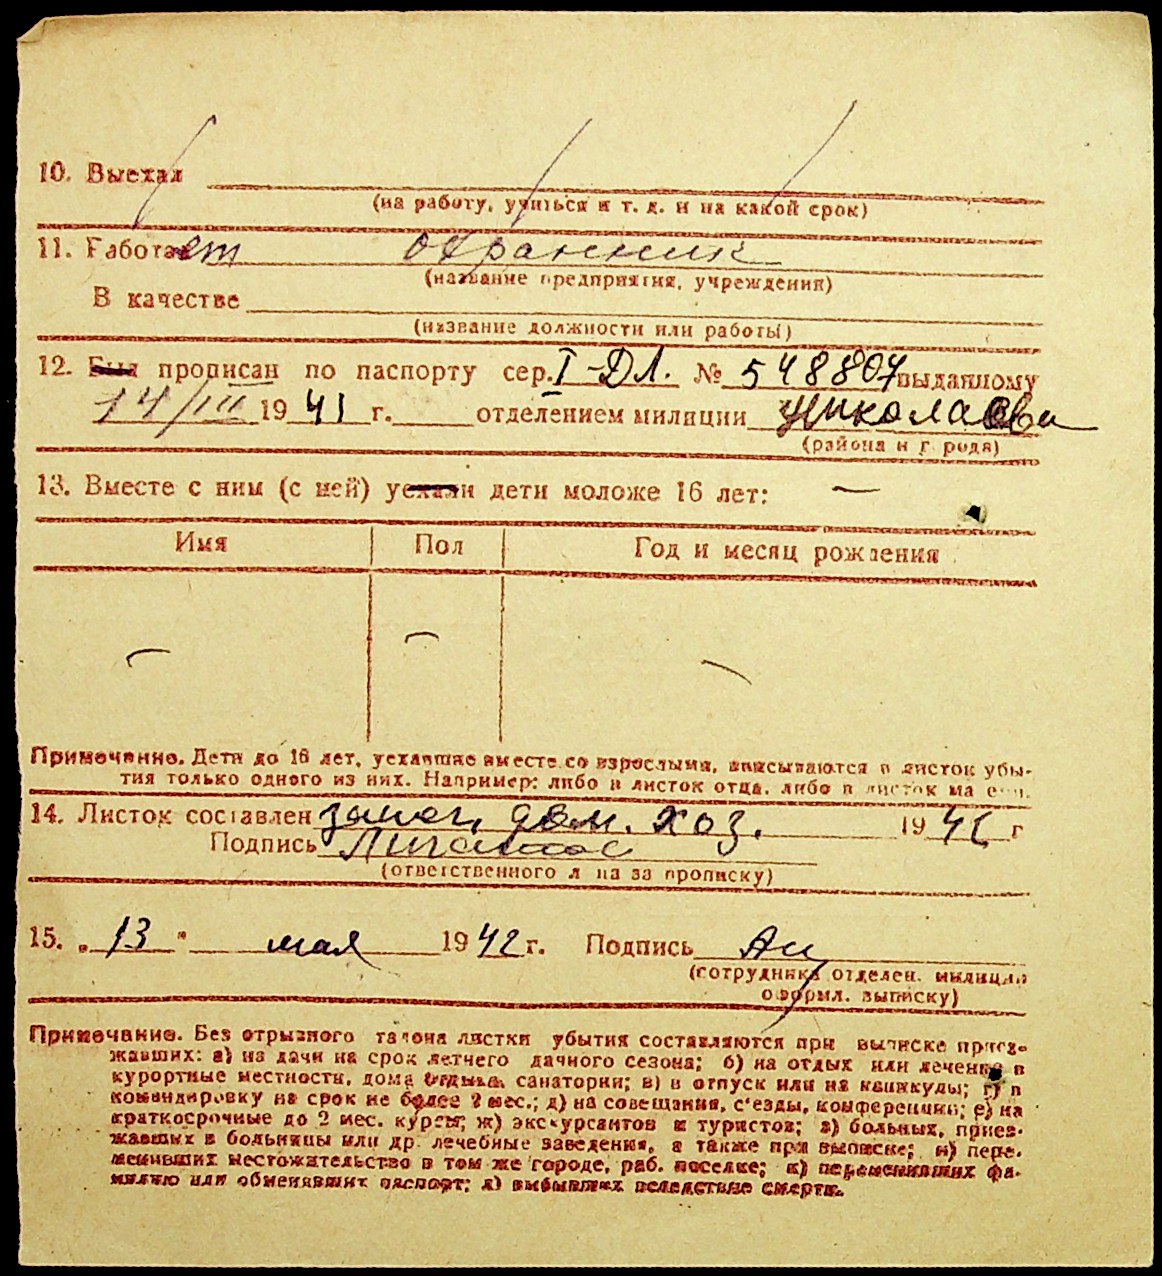 10. Выехал
(на работу, учиться и т. д. и на какой срок)
11. Работает охранник
(название предприятия, учреждения)
В качестве
(название должности или работы)
12. Был прописан по паспорту сер. I-ДЛ. № 548807 выданному
14/III 1941 г. отделением милиции Николаева
(района и г рода)
13. Вместе с ним (с ней) уехали дети моложе 16 лет: —
Имя Пол Год и месяц рождения
— — —
Примечание. Дети до 16 лет, уехавшие вместе со взрослыми, вписываются в листок убы-
тия только одного из них. Например: либо в листок отца, либо в листок ма ери.
14. Листок составлен дом. хоз. 1942 г
Подпись
(ответственного л ца за прописку)
15. „13" мая 1942 г. Подпись
(сотрудника отделен. милиции
оформл. выписку)
Примечание. Без отрывного талона листки убытия составляются при выписке приез-
жавших: а) на дачи на срок летнего дачного сезона; б) на отдых или лечение в
курортные местности, дома отдыха, санатории; в) в отпуск или на каникулы; г) в
командировку на срок не более 2 мес.; д) на совещания, с'езды, конференции; е) на
краткосрочные до 2 мес. курсы; ж) экскурсантов и туристов; з) больных, приез-
жавших в больницы или др. лечебные заведения, а также при выписке; и) пере-
менивших местожительство в том же городе, раб. поселке; к) переменивших фа-
милию или обменявших паспорт; л) выбывших вследствие смерти.